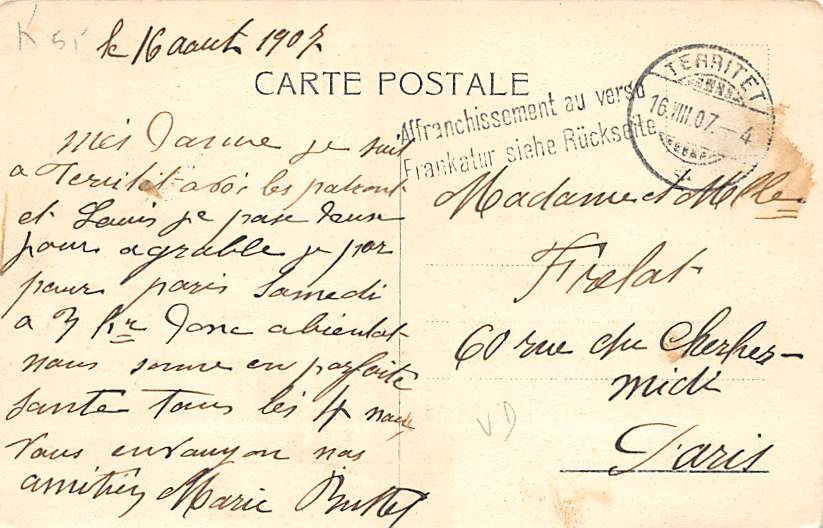 K 51
le 16 aout 1907
CARTE POSTALE
TERRITET
16.VIII.07.-4
Affranchissement au verso
Frankatur siehe Rückseite
mes Danne je suit
a Territet avec les patront
et Louis je pase deux
jours agrable je par
pour paris Samedi
a 7 hr donc abientot
nous somme en parfaite
sante tous les 4 nous
vous envoyon nos
amitiés Marie
Madame et Mlle
Frelat
60 rue du Cherher-
midi
Paris
VD